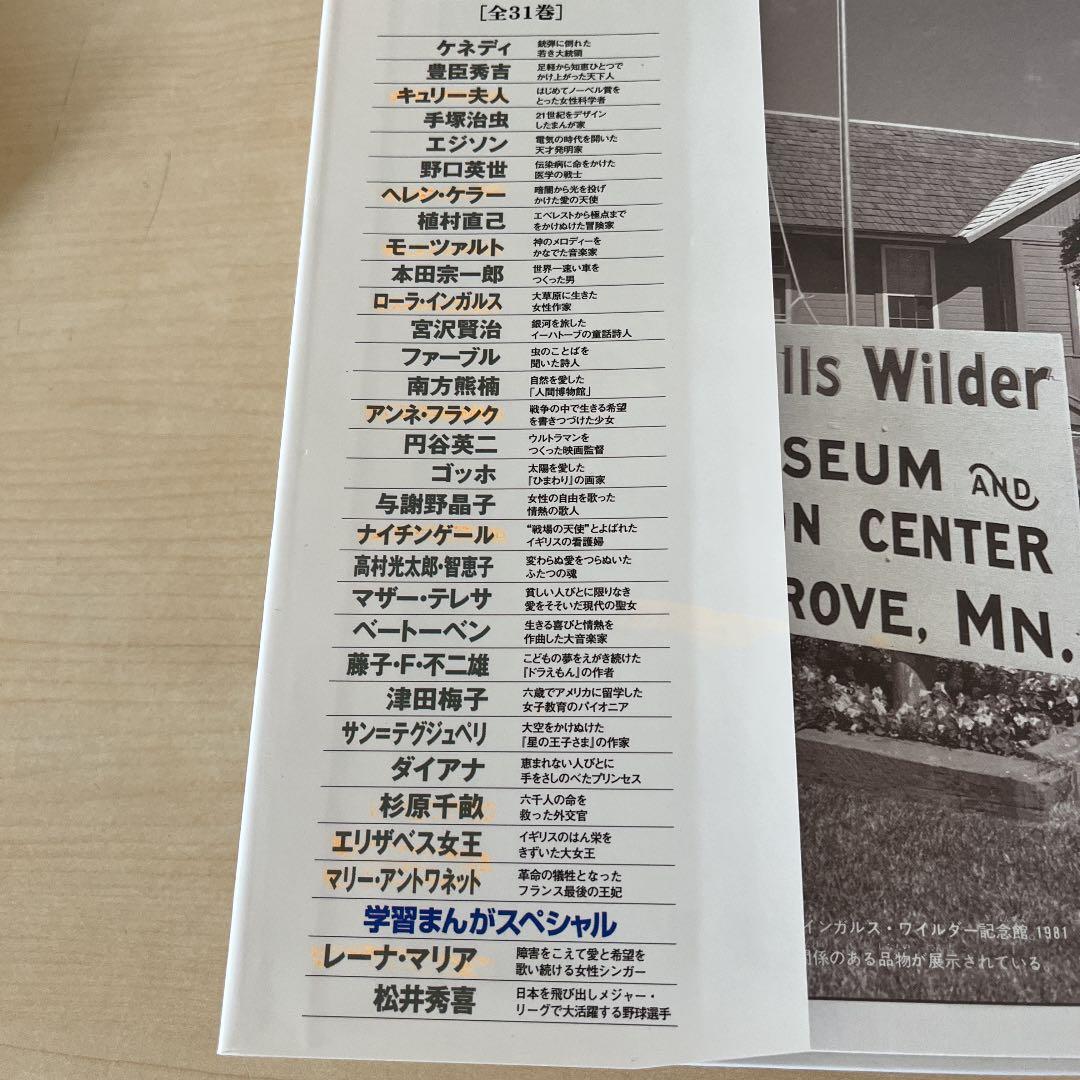 [全31巻]
ケネディ 銃弾に倒れた
若き大統領
豊臣秀吉 足軽から知恵ひとつで
かけ上がった天下人
キュリー夫人 はじめてノーベル賞を
とった女性科学者
手塚治虫 21世紀をデザイン
したまんが家
エジソン 電気の時代を開いた
天才発明家
野口英世 伝染病に命をかけた
医学の戦士
ヘレン・ケラー 暗闇から光を投げ
かけた愛の天使
植村直己 エベレストから極点まで
をかけぬけた冒険家
モーツァルト 神のメロディーを
かなでた音楽家
本田宗一郎 世界一速い車を
つくった男
ローラ・インガルス 大草原に生きた
女性作家
宮沢賢治 銀河を旅した
イーハトーブの童話詩人
ファーブル 虫のことばを
聞いた詩人
南方熊楠 自然を愛した
「人間博物館」
アンネ・フランク 戦争の中で生きる希望
を書きつづけた少女
円谷英二 ウルトラマンを
つくった映画監督
ゴッホ 太陽を愛した
『ひまわり』の画家
与謝野晶子 女性の自由を歌った
情熱の歌人
ナイチンゲール “戦場の天使”とよばれた
イギリスの看護婦
高村光太郎・智恵子 変わらぬ愛をつらぬいた
ふたつの魂
マザー・テレサ 貧しい人びとに限りなき
愛をそそいだ現代の聖女
ベートーベン 生きる喜びと情熱を
作曲した大音楽家
藤子・F・不二雄 こどもの夢をえがき続けた
『ドラえもん』の作者
津田梅子 六歳でアメリカに留学した
女子教育のパイオニア
サン=テグジュペリ 大空をかけぬけた
『星の王子さま』の作家
ダイアナ 恵まれない人びとに
手をさしのべたプリンセス
杉原千畝 六千人の命を
救った外交官
エリザベス女王 イギリスのはん栄を
きずいた大女王
マリー・アントワネット 革命の犠牲となった
フランス最後の王妃
学習まんがスペシャル
レーナ・マリア 障害をこえて愛と希望を
歌い続ける女性シンガー
松井秀喜 日本を飛び出しメジャー・
リーグで大活躍する野球選手
lls Wilder
SEUM AND
N CENTER
ROVE, MN.
インガルス・ワイルダー記念館。1981
関係のある品物が展示されている。